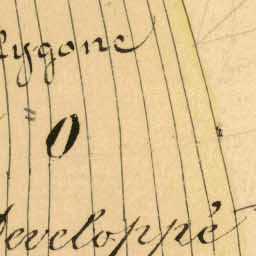 lygone
O
Developpé